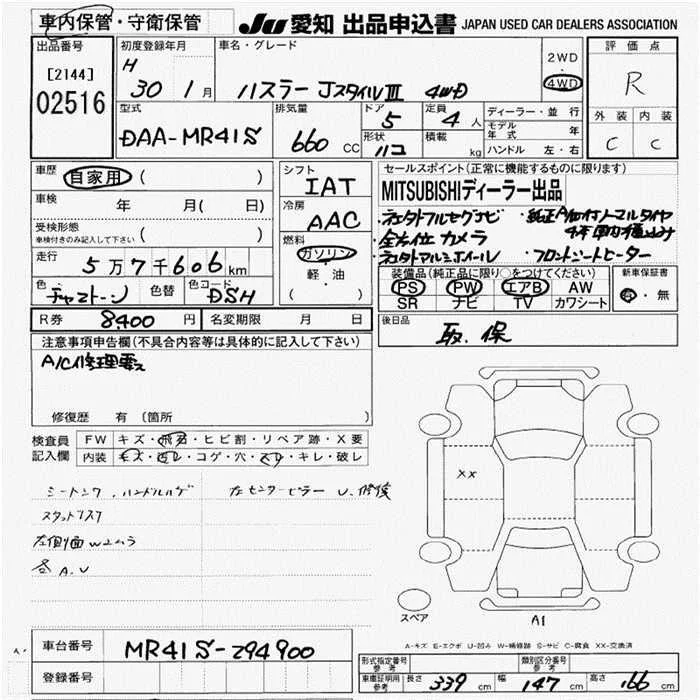 車内保管・守衛保管
JU 愛知 出品申込書 JAPAN USED CAR DEALERS ASSOCIATION
出品番号
[2144]
02516
初度登録年月
H 30 1 月
車名・グレード
ハスラー JスタイルⅢ 4WD
2WD
・
4WD
評価点
R
外装 内装
C C
型式
DAA-MR41S
排気量
660 CC
ドア
5
形状
ハコ
定員
4 人
積載
kg
ディーラー・並行
モデル年式 年
ハンドル 左・右
車歴
自家用 ( )
車検 年 月( 日)
受検形態
車検付きのみ記入して下さい ( )
走行
5万7千606 km
色 色替 色コード
チャコトーン DSH
シフト
IAT
冷房
AAC
燃料
ガソリン
軽・油
( )
セールスポイント(正常に機能するものに限ります)
MITSUBISHIディーラー出品
・社外フルセグナビ ・純正A/W付ノーマルタイヤ
4本車内積込み
・全方位カメラ
・社外アルミホイール ・フロントシートヒーター
装備品(純正品に限り○をつけてください) 新車保証書
PS PW エアB AW
SR ナビ TV カワシート
有・無
R券 8,400 円 名変期限 月 日
後日品
取.保
注意事項申告欄(不具合内容等は具体的に記入して下さい)
A/C修理要ス
修復歴 有 〔箇所
検査員
記入欄
FW キズ・飛石・ヒビ割・リペア跡・X要
内装 キズ・汚レ・コゲ・穴・スレ・キレ・破レ
シートシワ、ハンドルハゲ 左センターピラー U.修復
左側面Wムラ
各A.U
XX
スペア
A1
A-キズ E-エクボ U-凹み W-補修跡 S-サビ C-腐食 XX-交換済
車台番号 MR41S-294900
登録番号
形式指定番号
参考
類別区分番号
参考
車庫証明用
参考
長さ 339 cm 幅 147 cm 高さ 166 cm